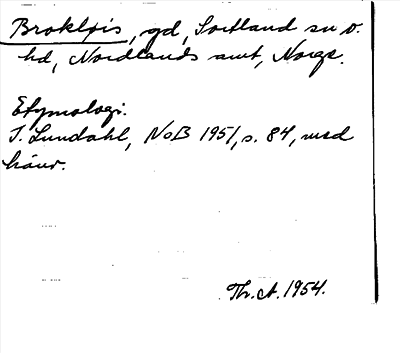 Brokløis, gd, Sortland sn o.
hd, Nordlands amt, Norge.
Etymologi.
I. Lundahl, NoB 1951, s. 84, med
hänv.
Th. A. 1954.